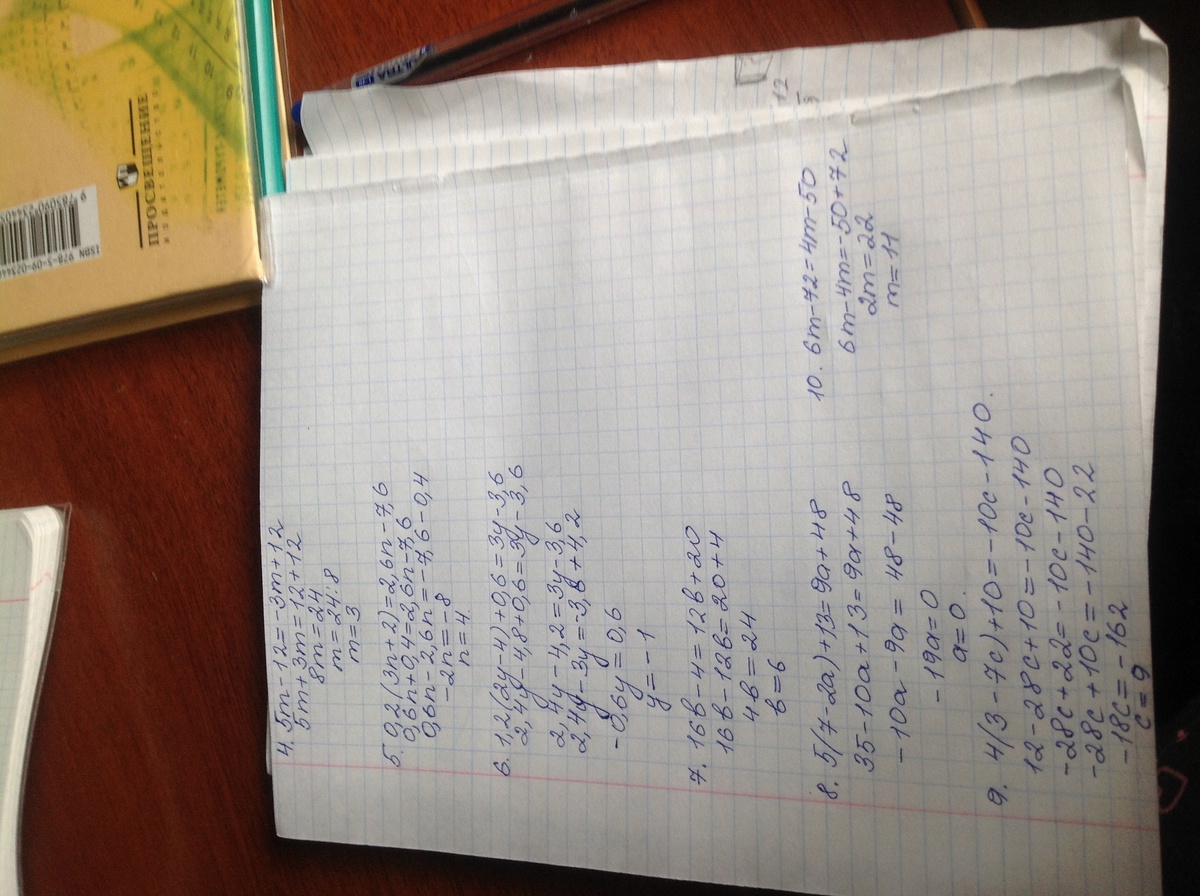 4. 5m-12=-3m+12
5m+3m=12+12
8m=24
m=24:8
m=3
5. 0,2(3n+2)=2,6n-7,6
0,6n+0,4=2,6n-7,6
0,6n-2,6n=-7,6-0,4
-2n=-8
n=4
6. 1,2(2y-4)+0,6=3y-3,6
2,4y-4,8+0,6=3y-3,6
2,4y-4,2=3y-3,6
2,4y-3y=-3,6+4,2
-0,6y=0,6
y=-1
7. 16b-4=12b+20
16b-12b=20+4
4b=24
b=6
8. 5(7-2a)+13=9a+48
35-10a+13=9a+48
-10a-9a=48-48
-19a=0
a=0.
9. 4(3-7c)+10=-10c-140.
12-28c+10=-10c-140
-28c+22=-10c-140
-28c+10c=-140-22
-18c=-162
c=9
10. 6m-72=4m-50
6m-4m=-50+72
2m=22
m=11
12
ПРОСВЕЩЕНИЕ
ИЗДАТЕЛЬСТВО
ULTRA